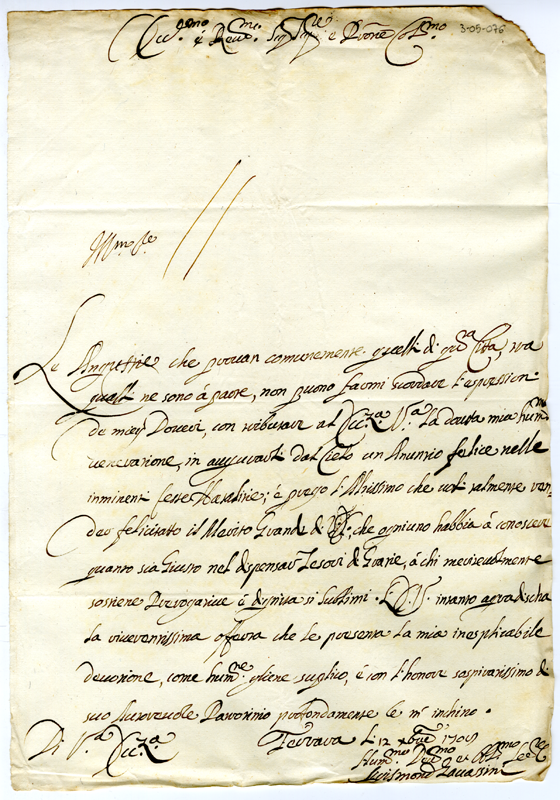 Ecc.mo é Rev.mo Sig.r Sig.r e Prone Col.mo
3-09-076
Ill.mo Sr.e
Le Angustie che provan comunemente quelli di q.sta Città, trà
quali ne sono à parte, non puono farmi scordar l'espression
de miei Doveri, con tributar al Ecc.za V.ra la dovuta mia hum.ma
venerazione, in augurarli dal Cielo un Annuncio felice nelle
inminenti feste Natalitie; é prego l'Altissimo che vol talmente ren
der felicitatto il Merito Grande di che ogniuno habbia á conoscer
quanto sia Giusto nel dispensar Tesori di Gratie, á chi meritevolmente
sostiene Prerogative é dignità si sublimi. L'E.V. intanto agradischa
la riverentissima offerta che le presenta la mia inesplicabile
devotione, come hum.te gliene suplico, é con l'honore sospiratissimo di
suo Autorevole Patrocinio profondamente le m' inchino.
Di V.ra Ecc.za
Ferrara l 12 Xbre 1709
Hum.mo Dev.mo et Obl.mo Ser.e
Sigismondo Lavassini